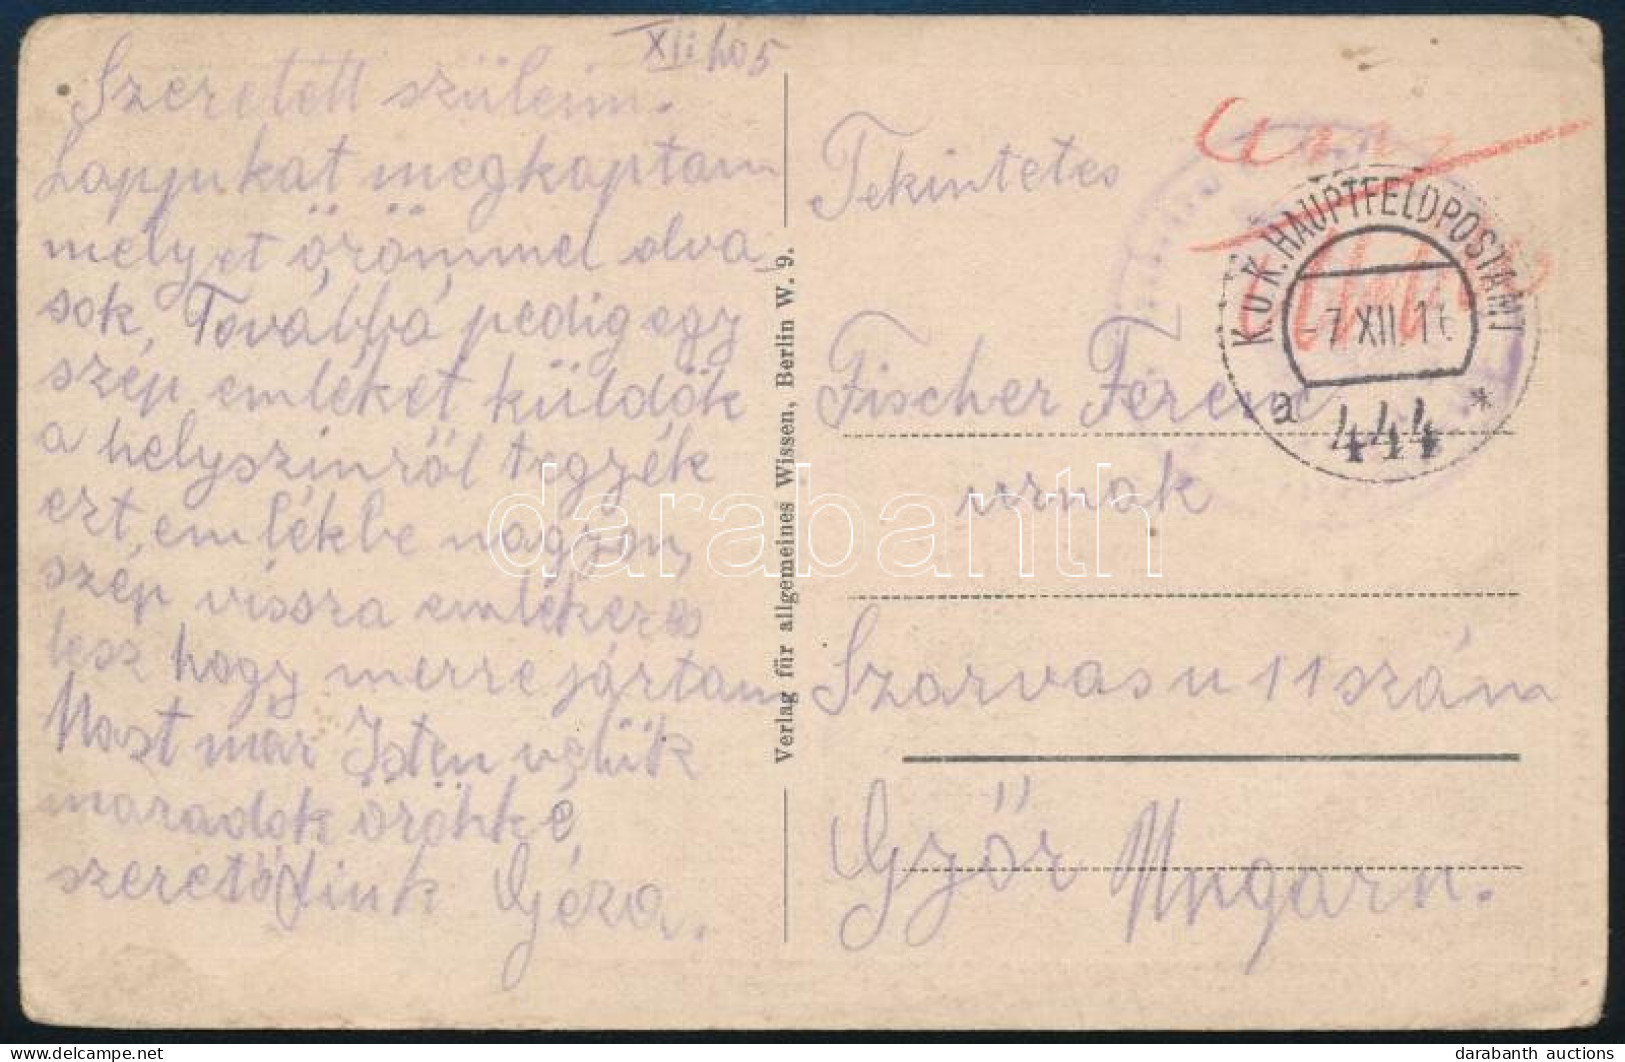 XII hó 5
Szeretett szüleim.
Lapjukat megkaptam
melyet örömmel olva
sok, Továbbá pedig egy
szép emléket küldök
a helyszinről tegyék
ezt, emlékbe nagyon,
szép vissza emlékezés
lesz hogy merre jártam
Most már Isten velük
maradok örökké,
szerető fiuk Géza.
Verlag für allgemeines Wissen, Berlin W. 9.
Tekintetes
Fischer Ferenc
urnak
Szarvas u 11 szám
Győr Ungarn.
K. u. K. HAUPTFELDPOSTAMT
-7. XII. 16
a 444 *
darabanth
darabanth auctions